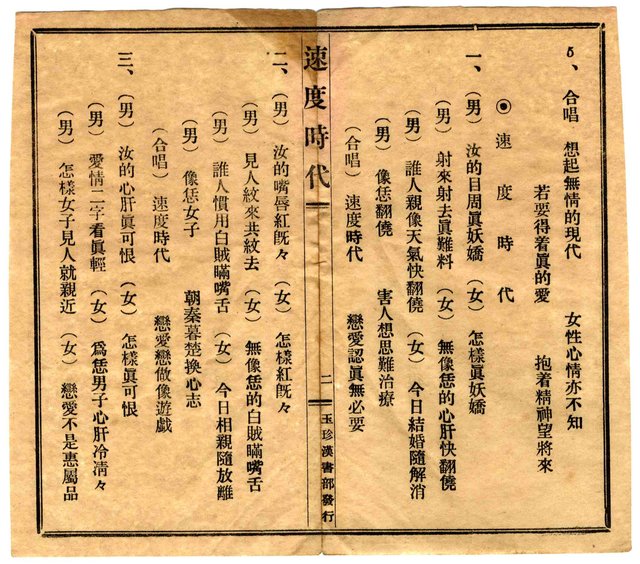 5、合唱 想起無情的現代 女性心情亦不知
若要得着眞的愛 抱着精神望將來
◉速度時代
一、(男) 汝的目周眞妖嬌 (女) 怎樣眞妖嬌
(男) 射來射去眞難料 (女) 無像恁的心肝快翻僥
(男) 誰人親像天氣快翻僥 (女) 今日結婚隨解消
(男) 像恁翻僥 害人想思難治療
(合唱) 速度時代 戀愛認眞無必要
速度時代 二 玉珍漢書部發行
二、(男) 汝的嘴唇紅旣々 (女) 怎樣紅旣々
(男) 見人紋來共紋去 (女) 無像恁的白賊瞞嘴舌
(男) 誰人慣用白賊瞞嘴舌 (女) 今日相親隨放離
(男) 像恁女子 朝秦暮楚換心志
(合唱) 速度時代 戀愛戀做像遊戲
三、(男) 汝的心肝眞可恨 (女) 怎樣眞可恨
(男) 愛情二字看眞輕 (女) 爲恁男子心肝冷淸々
(男) 怎樣女子見人就親近 (女) 戀愛不是惠屬品